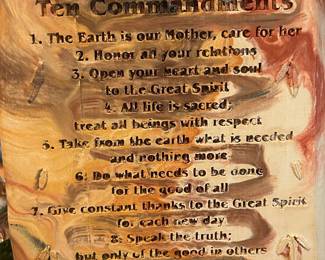 Ten Commandments
1. The Earth is our Mother, care for her
2. Honor all your relations
3. Open your heart and soul
to the Great Spirit
4. All life is sacred;
treat all beings with respect
5. Take from the earth what is needed
and nothing more
6. Do what needs to be done
for the good of all
7. Give constant thanks to the Great Spirit
for each new day
8. Speak the truth;
but only of the good in others